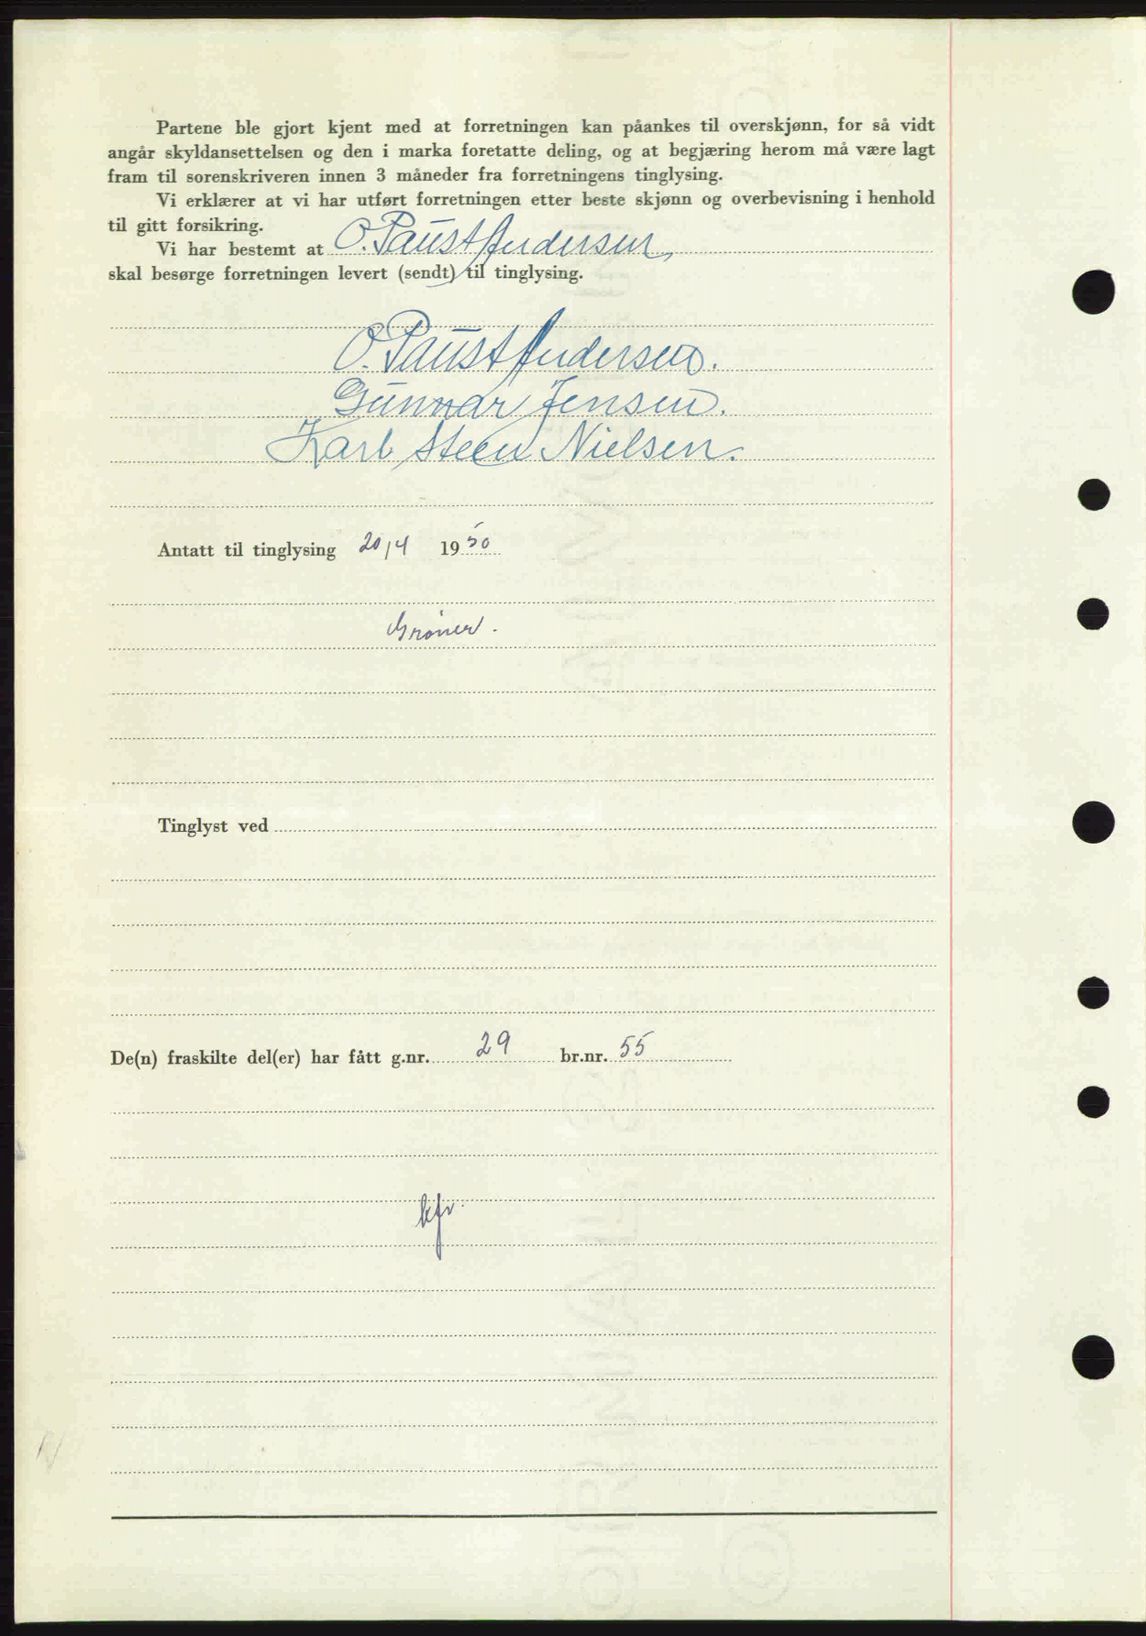 Partene ble gjort kjent med at forretningen kan påankes til overskjønn, for så vidt
angår skyldansettelsen og den i marka foretatte deling, og at begjæring herom må være lagt
fram til sorenskriveren innen 3 måneder fra forretningens tinglysing.
Vi erklærer at vi har utført forretningen etter beste skjønn og overbevisning i henhold
til gitt forsikring.
Vi har bestemt at O. Paust Andersen,
skal besørge forretningen levert (sendt) til tinglysing.
O. Paust Andersen.
Gunnar Jensen.
Karl Steen Nielsen.
Antatt til tinglysing 20/4 1950
Grøner.
Tinglyst ved
De(n) fraskilte del(er) har fått g.nr. 29 br.nr. 55
kfr.